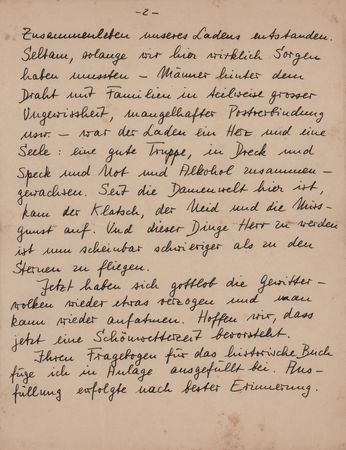 - 2 -
Zusammenleben unseres Ladens entstanden.
Seltsam, solange wir hier wirklich Sorgen
haben mussten - Männer hinter dem
Draht mit Familien in teilweise grosser
Ungewissheit, mangelhafter Postverbindung
usw. - war der Laden ein Herz und eine
Seele: eine gute Truppe, in Dreck und
Speck und Not und Alkohol zusammen-
gewachsen. Seit die Damenwelt hier ist,
kam der Klatsch, der Neid und die Miss-
gunst auf. Und dieser Dinge Herr zu werden
ist nun scheinbar schwieriger als zu den
Sternen zu fliegen.
Jetzt haben sich gottlob die Gewitter-
wolken wieder etwas verzogen und man
kann wieder aufatmen. Hoffen wir, dass
jetzt eine Schönwetterzeit bevorsteht.
Ihren Fragebogen für das historische Buch
füge ich in Anlage ausgefüllt bei. Aus-
füllung erfolgte nach bester Erinnerung.